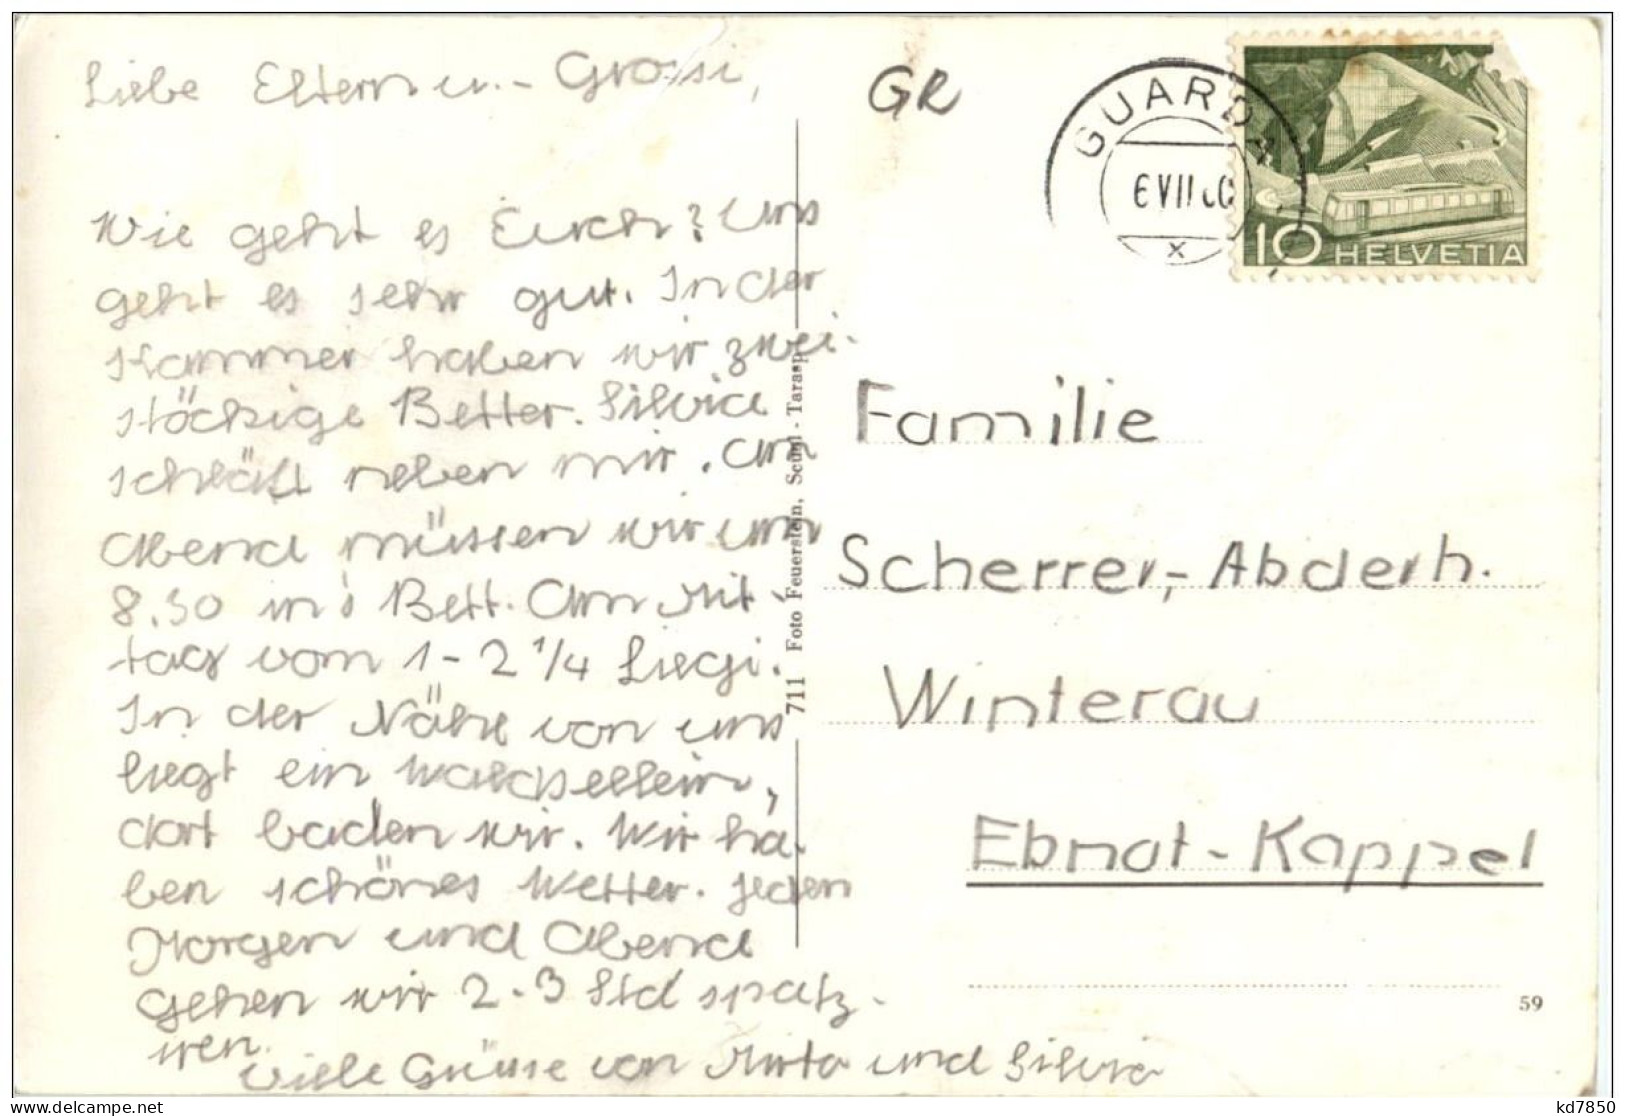 Liebe Eltern u. Grossi,
Wie geht es Euch? Uns
geht es sehr gut. In der
Kammer haben wir zwei-
stöckige Better. Silvia
schläft neben mir. Am
Abend müssen wir um
8.30 in's Bett. Am Mit-
tag vom 1-2 1/4 Liegi.
In der Nähe von uns
liegt ein
dort baden wir. Wir ha-
ben schönes Wetter. Jeden
Morgen und Abend
gehen wir 2-3 Std spatz-
ren.
Viele Grüsse von und Silvia
711 Foto Feuerstein, Scuol - Tarasp
GR
GUARDA
6 VII 60
X
10 HELVETIA
Familie
Scherrer,- Abderh.
Winterau
Ebnat-Kappel
59
kd7850